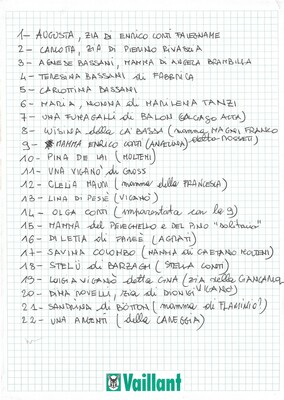 1- AUGUSTA, ZIA DI ENRICO CONTI FALEGNAME
2- CARLOTTA, ZIA DI PIERINO RIVABELLA
3- AGNESE BASSANI, MAMMA DI ANGELA BRAMBILLA
4- TERESINA BASSANI di FABBRICA
5- CAROTTINA BASSANI
6- MARIA, NONNA di MARILENA TANZI
7- UNA FUMAGALLI di BALON (CALCO ALTA)
8- LUISINA della CA' BASSA (mamma MAGNI FRANCO
9- MAMMA ENRICO CONTI (ANGELINA) detto
10- PINA DE LAI (MOLTENI)
11- UNA VIGANO' di
12- CLELIA (mamma della FRANCESCA)
13- LINA DI PESSÈ (VIGANO')
14- OLGA CONTI (imparentata con la 9)
15- MAMMA DEL E DEL PINO "solitario"
16- DILETTA di (AGRATI)
17- SAVINA COLOMBO (MAMMA di GAETANO MOLTENI)
18- STELÙ di BARZAGH (STELLA CONTI)
19- LUIGIA VIGANO' della GINA (ZIA della GIANCARLA
20- DINA NOVELLI, zia di DIONIGI VIGANO')
21- SANDRINA di (mamma di FLAMINIO?)
22- UNA ARGENTI (della CAREGGIA)
Vaillant